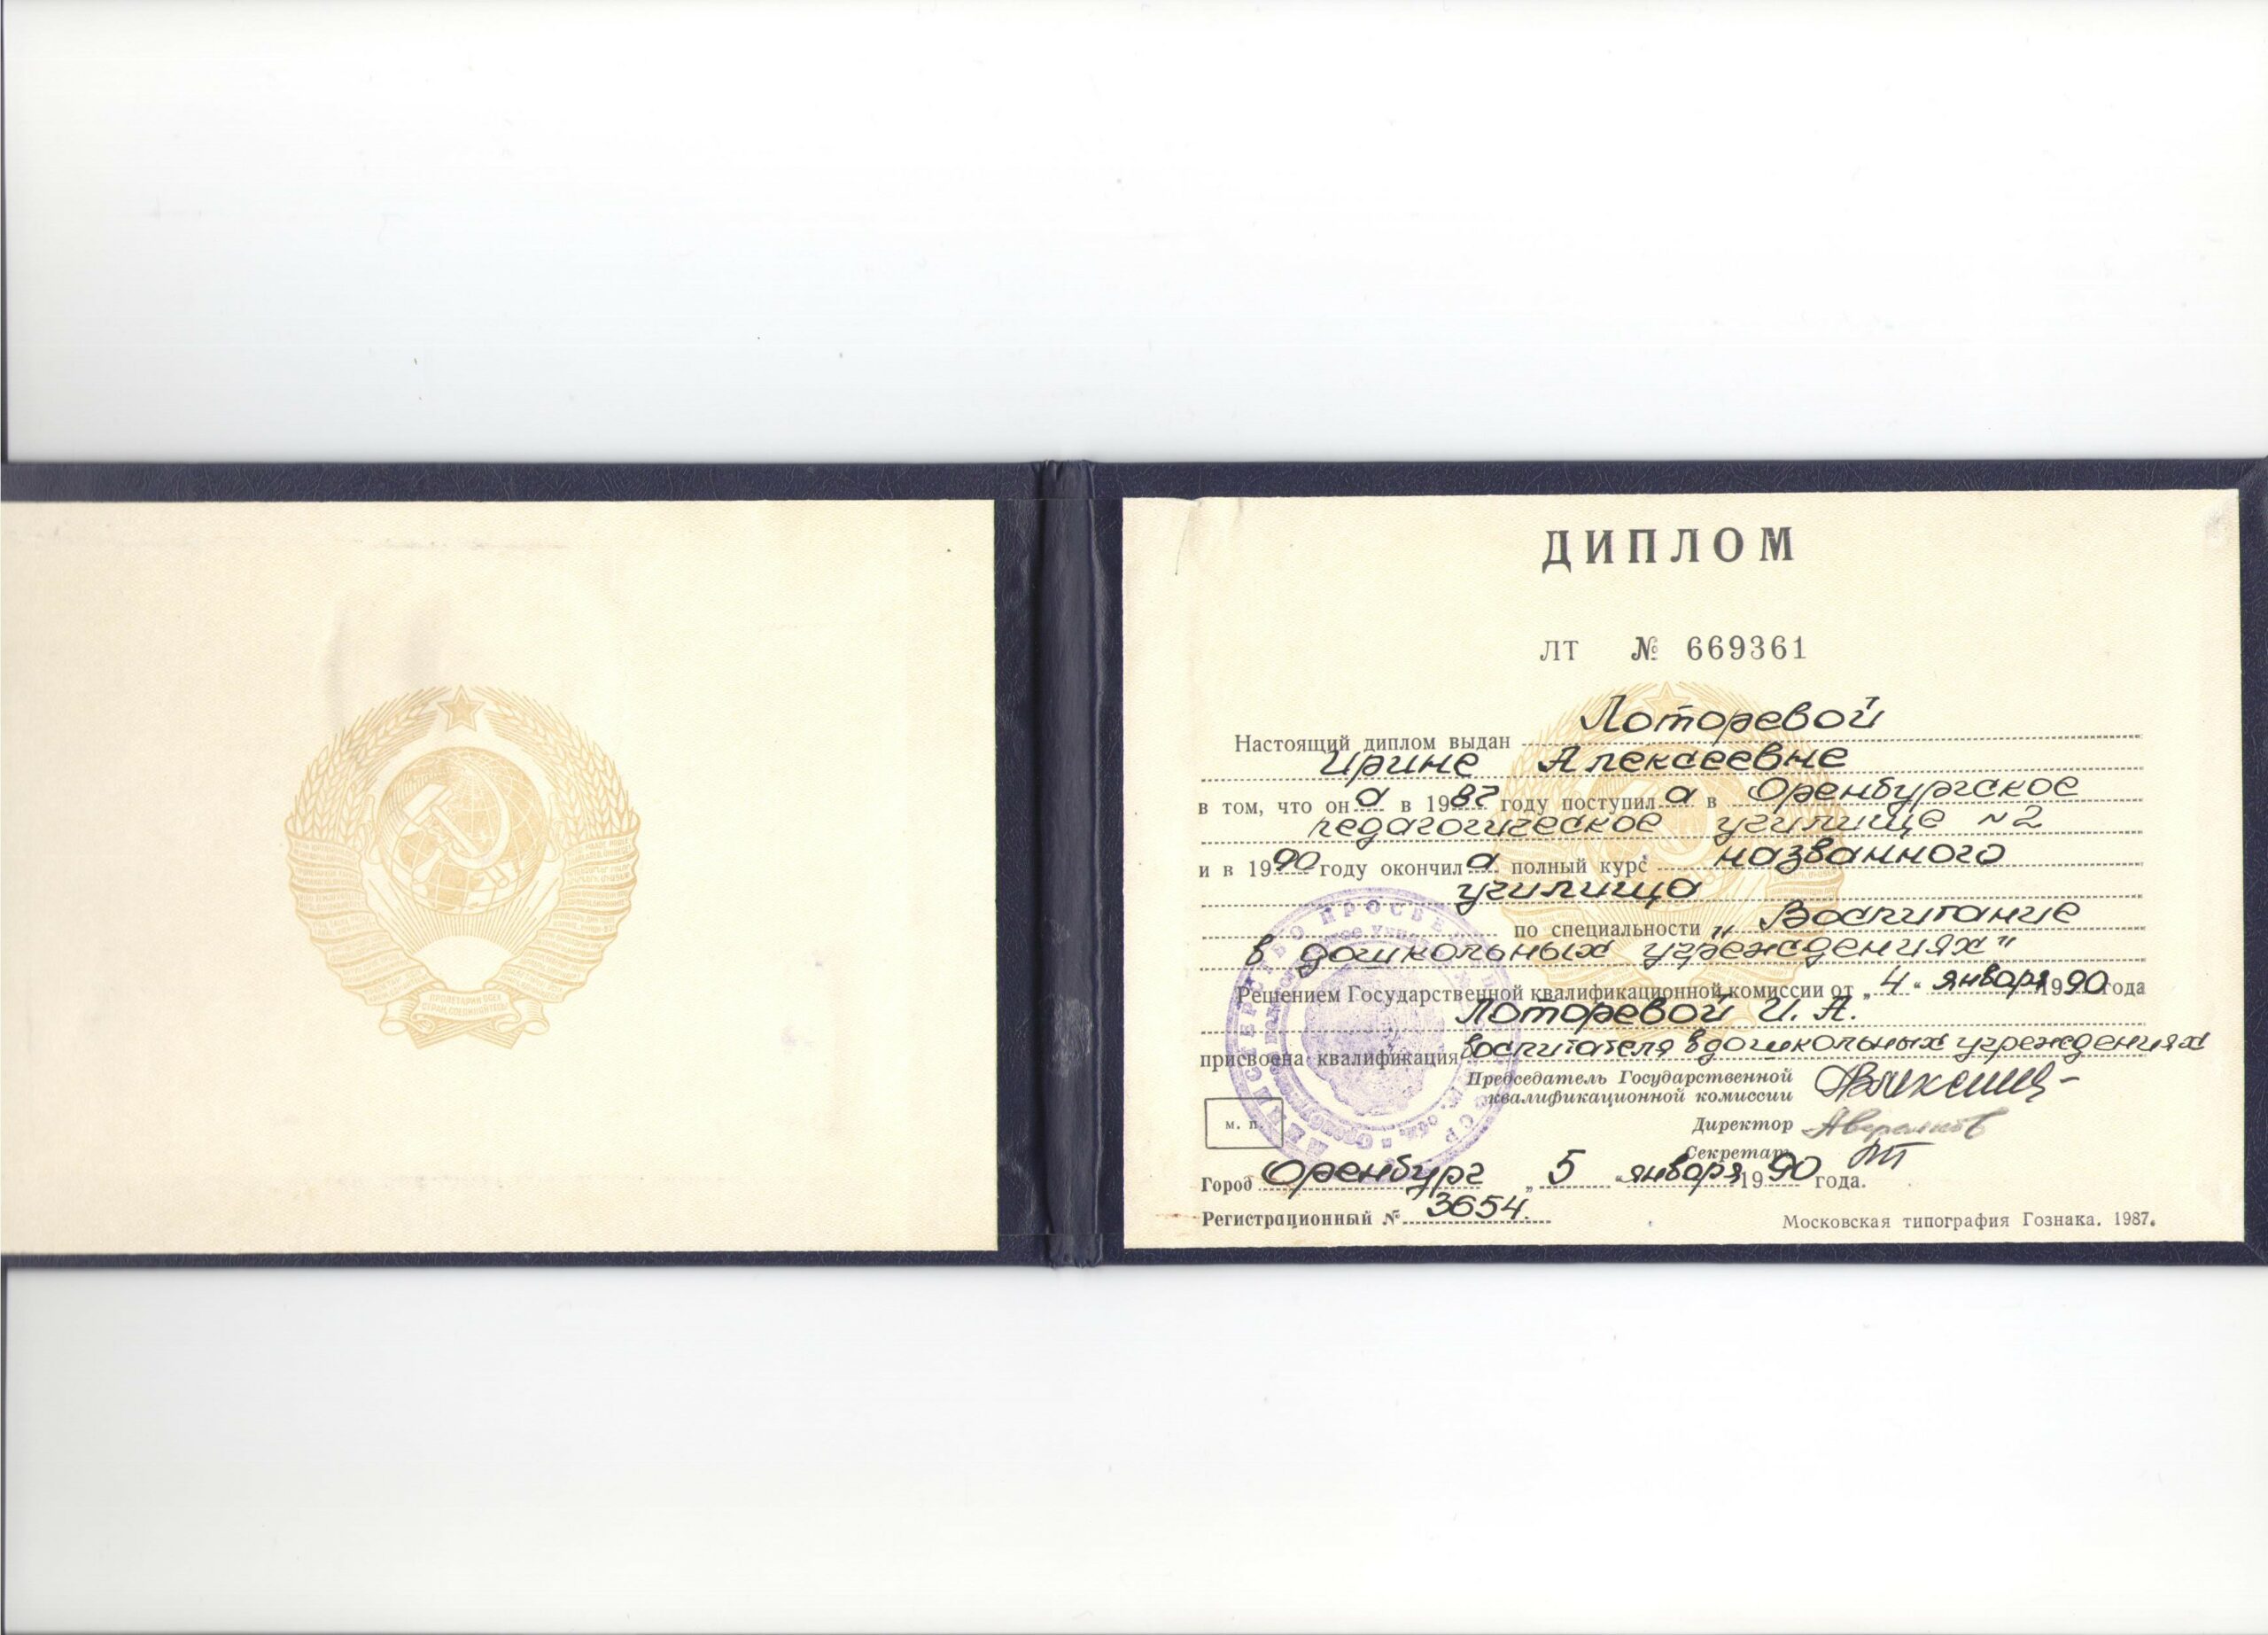 ПРОЛЕТАРИИ ВСЕХ
СТРАН, СОЕДИНЯЙТЕСЬ!
ДИПЛОМ
ЛТ № 669361
Настоящий диплом выдан Лоторевой
Ирине Алексеевне
в том, что он а в 1987 году поступил а в Оренбургское
педагогическое училище №2
и в 1990 году окончил а полный курс названного
училища
по специальности „Воспитание
в дошкольных учреждениях"
Решением Государственной квалификационной комиссии от „4" января 1990 года
Лоторевой И. А.
присвоена квалификация воспитателя в дошкольных учреждениях
Председатель Государственной
квалификационной комиссии
Директор
Секретарь
м. п.
Город Оренбург „5" января 1990 года.
Регистрационный № 3654.
Московская типография Гознака. 1987.
МИНИСТЕРСТВО ПРОСВЕЩЕНИЯ